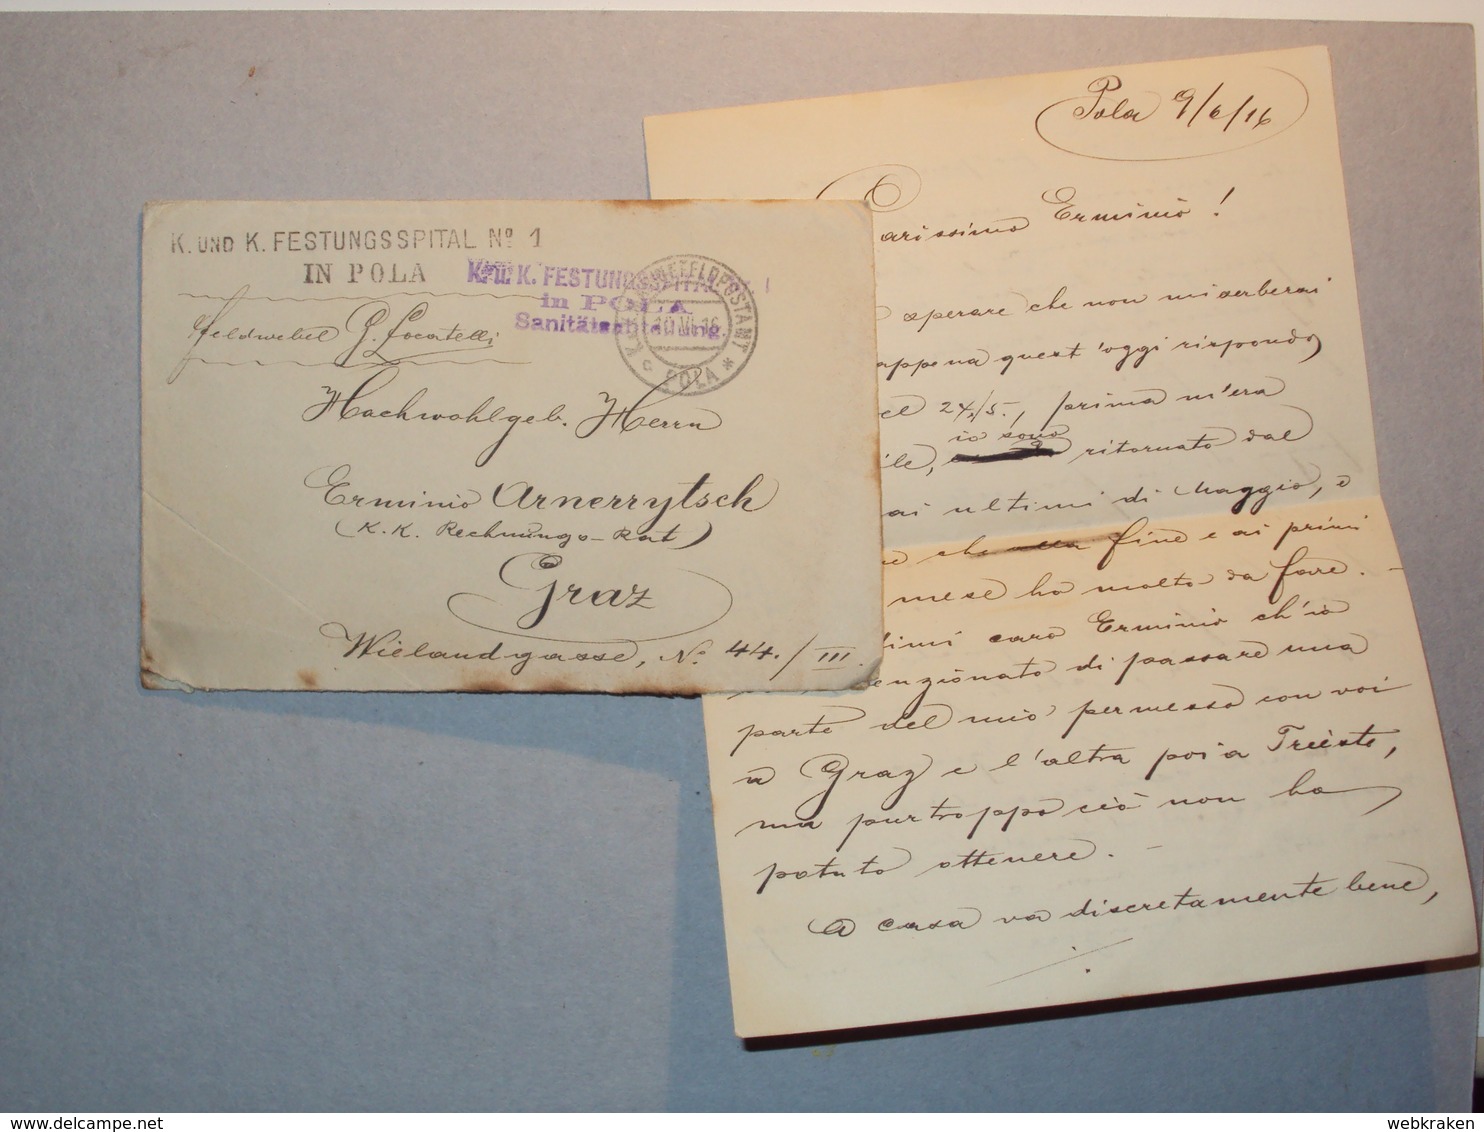 K. UND K. FESTUNGSSPITAL No 1
IN POLA
K. u. K. FESTUNGSSPITAL
in POLA
Sanitätsabteilung.
10.VI.16
POLA
Feldwebel G. Locatelli
Hochwohlgeb. Herrn
Erminio Arnerrytsch
(K. K. Rechnungs-Rat)
Graz
Wielandgasse, No 44./III.
Pola 9/6/16
Carissimo Erminio!
sperare che non miserberai
appena quest'oggi rispondo
24/5., prima m'era
io sono
ritornato dal
ai ultimi di Maggio, e
che alla fine e ai primi
mese ha molto da fare. -
caro Erminio ch'io
di passare una
parte del mio permesso con voi
a Graz e l'altra poi a Trieste,
ma purtroppo ciò non ho
potuto ottenere. -
A casa va discretamente bene,
delcampe.net
webkraken